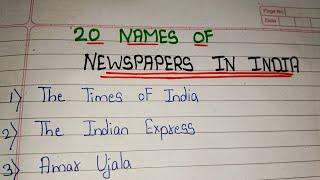 20 NAMES OF
NEWSPAPERS IN INDIA
1) The Times of India
2) The Indian Express
3) Amar Ujala